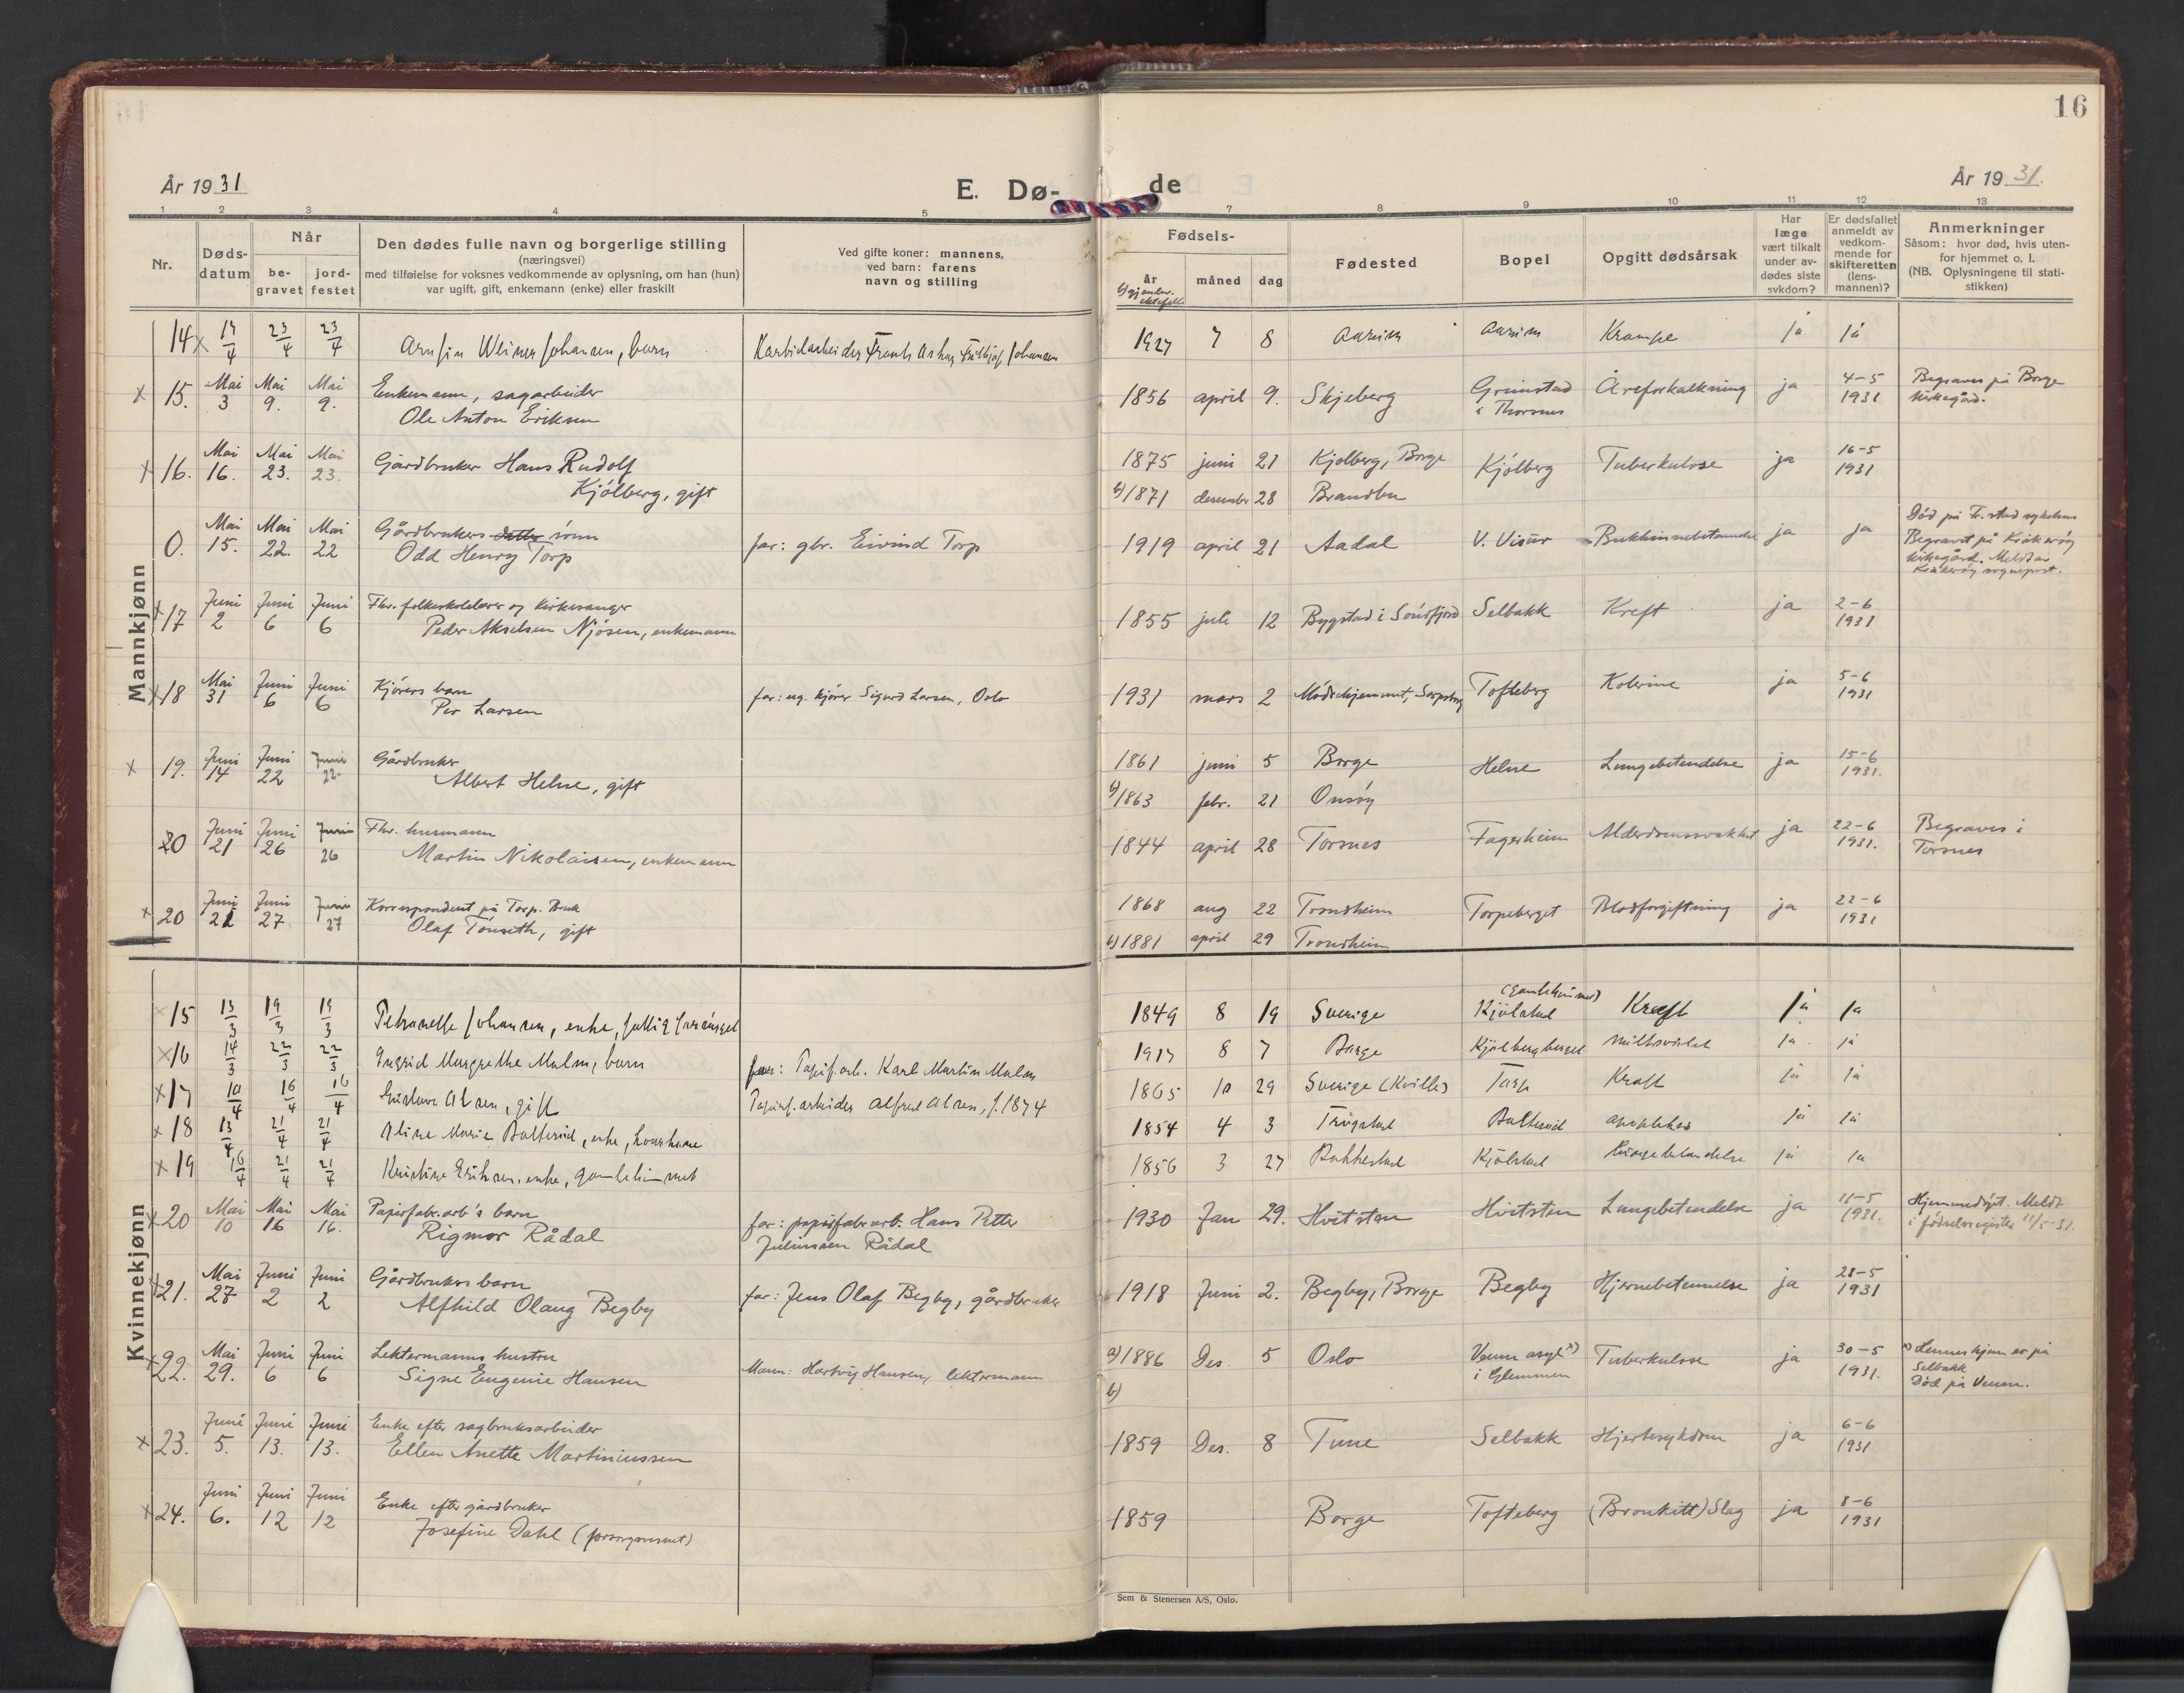 16
År 1931
E. Dø-
de
År 1931.
1 2 3 4 5 7 8 9 10 11 12 13
Nr.
Døds-
datum
Når
be-
gravet
jord-
festet
Den dødes fulle navn og borgerlige stilling
(næringsvei)
med tilføielse for voksnes vedkommende av oplysning, om han (hun)
var ugift, gift, enkemann (enke) eller fraskilt
Ved gifte koner: mannens,
ved barn: farens
navn og stilling
Fødsels-
år
måned
dag
Fødested
Bopel
Opgitt dødsårsak
Har
læge
vært tilkalt
under av-
dødes siste
sykdom?
Er dødsfallet
anmeldt av
vedkom-
mende for
skifteretten
(lens-
mannen)?
Anmerkninger
Såsom: hvor død, hvis uten-
for hjemmet o. l.
(NB. Oplysningene til stati-
stikken)
Mannkjønn
14 x 17/4 23/4 23/4 Johansen, barn Karbidarbeider Johansen 1927 7 8 Krampe ja ja
x 15. Mai 3 Mai 9. Mai 9. Enkemann, sagarbeider
Ole Anton Eriksen 1856 april 9. Skjeberg Grimstad i Thorsnes Åreforkalkning ja 4-5 1931 Begraves på Borge kirkegård.
x 16. Mai 16. Mai 23. Mai 23. Gårdbruker Hans Rudolf
Kjölberg, gift 1875 juni 21 Kjölberg, Borge Kjölberg Tuberkulose ja 16-5 1931
b) 1871 desember 28 Brandbu
0. Mai 15. Mai 22. Mai 22 Gårdbrukers datter sönn
Odd Henry Torp far: gbr. Eivind Torp 1919 april 21 Aadal V. Visur ja ja Död på Fr.stad sykehus
Begravet på Kråkeröy
kirkegård. Meldt av
Kråkeröy sogneprest.
x 17 Juni 2 Juni 6 Juni 6 Fhv. folkeskolelærer og kirkesanger
Peder Akselsen Njösen, enkemann 1855 juli 12 Bygstad i Söndfjord Selbakk Kreft ja 2-6 1931
x 18 Mai 31 Juni 6 Juni 6 Kjörers barn
Per Larsen far: ug. kjörer Sigurd Larsen, Oslo 1931 mars 2 Mödrehjemmet, Sarpsborg Tofteberg Kolerine ja 5-6 1931
x 19. Juni 14 Juni 22 Juni 22 Gårdbruker
Albert Helne, gift 1861 juni 5 Borge Helne Lungebetendelse ja 15-6 1931.
b) 1863 febr. 21 Onsöy
20 Juni 21 Juni 26 Juni 26 Fhv. husmann
Martin Nikolaisen, enkemann 1844 april 28 Torsnes Fagerheim Alderdomssvakhet ja 22-6 1931. Begraves i
Torsnes
x 20 Juni 21 Juni 27 Juni 27 Korrespondent på Torp. Bruk
Olaf Tönseth, gift 1868 aug 22 Trondheim Torpeberget Blodforgiftning ja 22-6 1931
b) 1881 april 29 Trondheim
Kvinnekjønn
x 15 13/3 19/3 19/3 Petronelle Johansen, enke, 1849 8 19 Sverige (Gamlehjemmet) Kjölstad Kræft ja ja
x 16 14/3 22/3 22/3 Ingrid Margrethe Malm, barn far: Papirf.arb. Karl Martin Malm 1917 8 7 Borge Kjølbergberget ja ja
x 17 10/4 16/4 16/4 Gustava Olsen, gift Papirf.arbeider Alfred Olsen, f. 1874 1865 10 29 Sverige (Kville) Torp Kraft ja ja
x 18 13/4 21/4 21/4 Oline Marie enke, 1854 4 3 Trögstad ja ja
x 19 16/4 21/4 21/4 Kristine Eriksen, enke, gamlehjemmet 1856 3 27 Bakkestad Kjölstad ja ja
x 20 Mai 10 Mai 16 Mai 16. Papirfabr.arb's barn
Rigmor Rådal far: papirfabr.arb. Hans Petter
Juliussen Rådal 1930 Jan 29. Hvitsten Hvitsten Lungebetendelse ja 11-5 1931. Hjemmedöpt. Meldt
i födselsregister 11/5-31.
x 21. Mai 27 Juni 2 Juni 2 Gårdbrukers barn
Alfhild Olaug Begby far: Jens Olaf Begby, gårdbruker 1918 Juni 2. Begby, Borge Begby Hjernebetennelse ja 28-5 1931
x 22. Mai 29. Juni 6 Juni 6 Lektermanns hustru
Signe Eugenie Hansen Mann: Hartvig Hansen, lektermann a) 1886 Des. 5 Oslo Veum asyl x) i Glemmen Tuberkulose ja 30-5 1931. x) Hennes hjem er på
Selbakk
Död på Veum.
b)
x 23. Juni 5. Juni 13. Juni 13. Enke efter sagbruksarbeider
Ellen Anette Martiniussen 1859 Des. 8 Tune Selbakk Hjertesykdom ja 6-6 1931
x 24. Juni 6. Juni 12 Juni 12 Enke efter gårdbruker
Josefine Dahl (forsorgsvesenet) 1859 Borge Tofteberg (Bronkitt) Slag ja 8-6 1931
Sem & Stenersen A/S, Oslo.